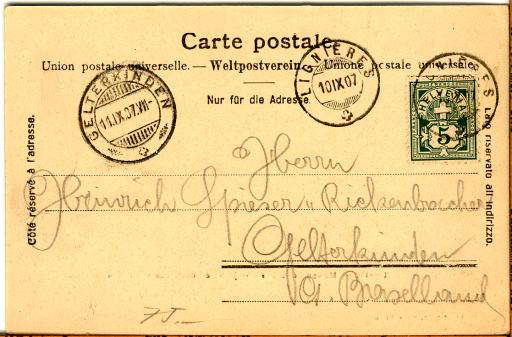 Carte postale.
Union postale universelle. — Weltpostverein. — Unione postale universale.
Nur für die Adresse.
Côté réservé à l'adresse.
Lato riservato all'indirizzo.
GELTERKINDEN
11.IX.07.VII-
LIGNIERES
10 IX 07
LIGNIERES
HELVETIA
5
Herrn
Heinrich Spieser-Rickenbacher
Gelterkinden
Ct. Baselland
75.–